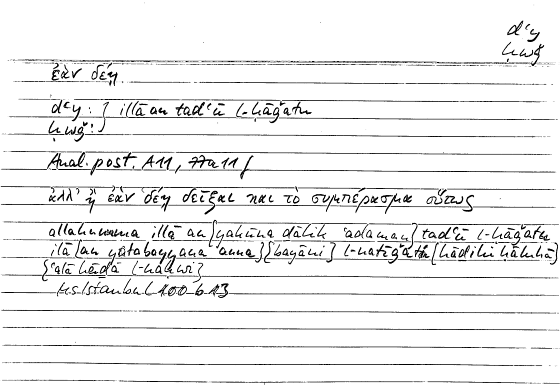 dʿy
ḥwǧ
ἐὰν δέῃ
dʿy : } illā an tadʿū l-ḥāǧatu
ḥwǧ :
Anal. post. A11, 77a11 f
ἀλλ' ἢ ἐὰν δέῃ δεῖξαι καὶ τὸ συμπέρασμα οὕτως
allahumma illā an {yakūna dālik ʿadaman} tadʿū l-ḥāǧatu
ilā {an yatabayyana ʾanna} {bayāni} l-natīǧatu {hādihi ḥāluhā}
{ʿalā hādā l-naḥwi}
Hs Istanbul 100 b 13